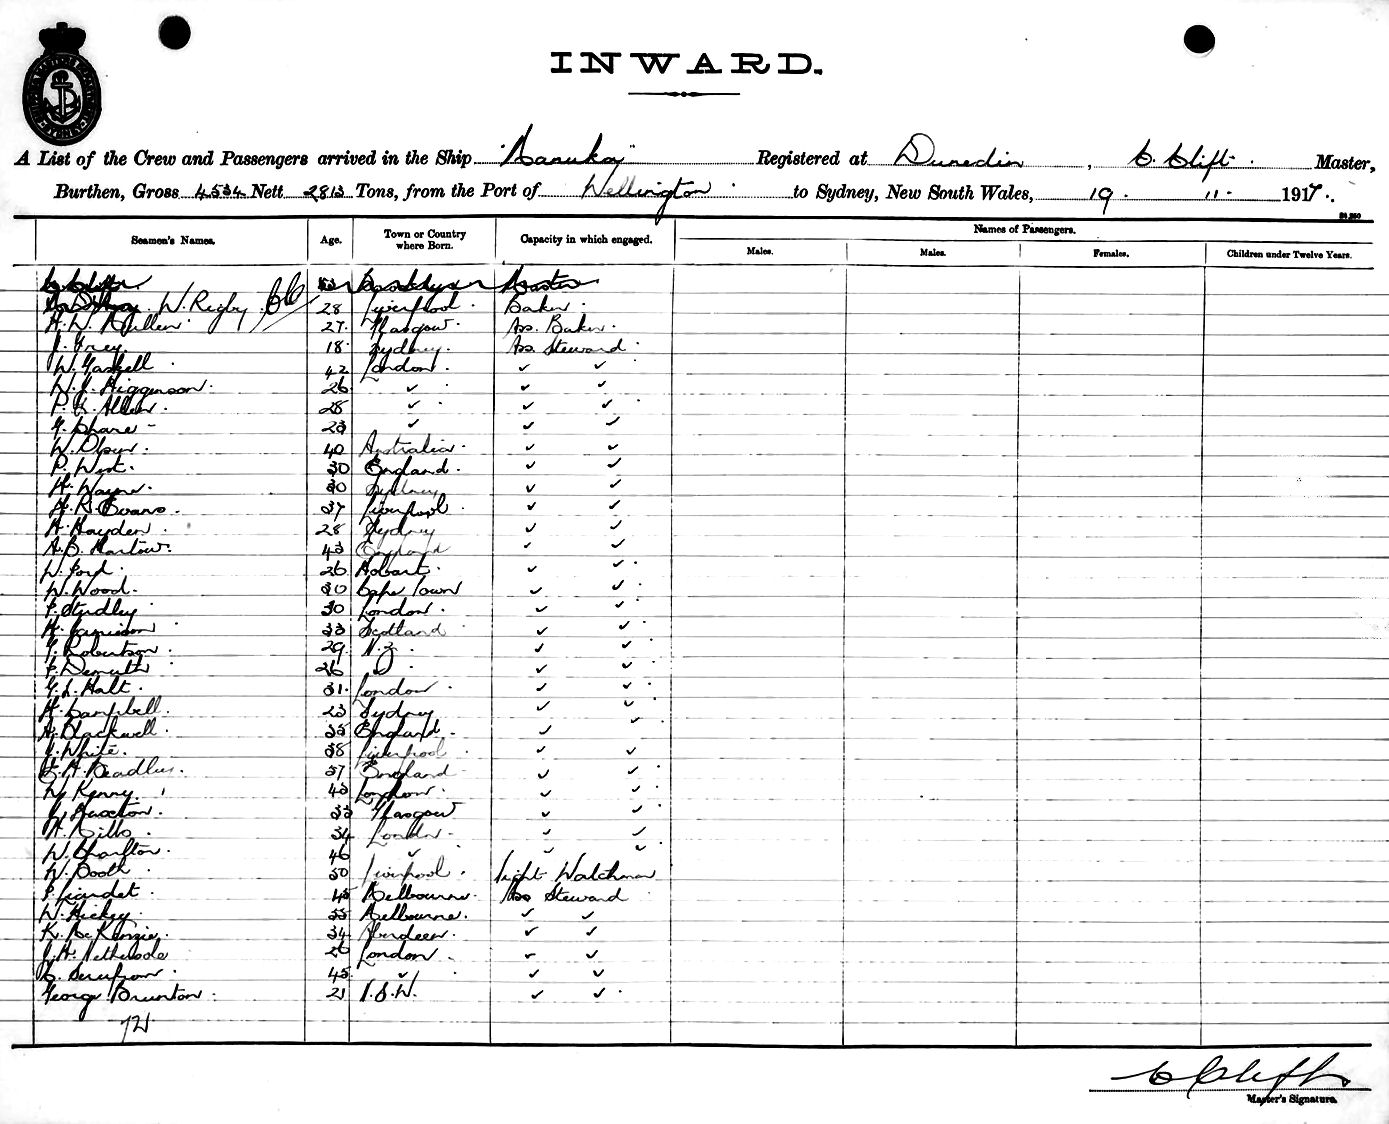 INWARD.
A List of the Crew and Passengers arrived in the Ship "Manuka" Registered at Dunedin, C. Clift. Master,
Burthen, Gross 4534 Nett 2813 Tons, from the Port of Wellington to Sydney, New South Wales, 19. 11. 1917.
Seamen's Names. Age. Town or Country where Born. Capacity in which engaged. Names of Passengers.
Males. Males. Females. Children under Twelve Years.
C. Clift Master
W. Rigby CC 28 Liverpool Baker
H. W. 27 Glasgow Ass. Baker
J. Grey 18 Sydney Ass. Steward
W. Gaskell 42 London ✓ ✓
W. J. Higginson 26 ✓ ✓ ✓
P. Allen 28 ✓ ✓ ✓
G. Share 23 ✓ ✓ ✓
W. 40 Australia ✓ ✓
P. West 30 England ✓ ✓
H. Wayne 30 Sydney ✓ ✓
H. R. Evans 37 Liverpool ✓ ✓
H. Hayden 28 Sydney ✓ ✓
A. B. Harlow 43 England ✓ ✓
W. Ford 26 Hobart ✓ ✓
W. Wood 30 Cape Town ✓ ✓
F. Studley 30 London ✓ ✓
H. Jamieson 33 Scotland ✓ ✓
G. Robertson 29 N.Z. ✓ ✓
26 D ✓ ✓
G. L. Halt 31 London ✓ ✓
H. Campbell 23 Sydney ✓ ✓
A. Blackwell 35 England ✓ ✓
J. White 38 Liverpool ✓ ✓
H. Beadley 37 England ✓ ✓
W. Kenny 43 London ✓ ✓
J. Buxton 33 Glasgow ✓ ✓
H. Gills 34 London ✓ ✓
W. 46 ✓ ✓ ✓
W. Booth 50 Liverpool Night Watchman
P. Liardet 45 Melbourne Ass Steward
W. Hickey 35 Melbourne ✓ ✓
K. McKenzie 34 Aberdeen ✓ ✓
J. H. Nethersole 26 London ✓ ✓
C. 45 ✓ ✓ ✓
George Brunton 21 N.S.W. ✓ ✓
C Clift
Master's Signature.